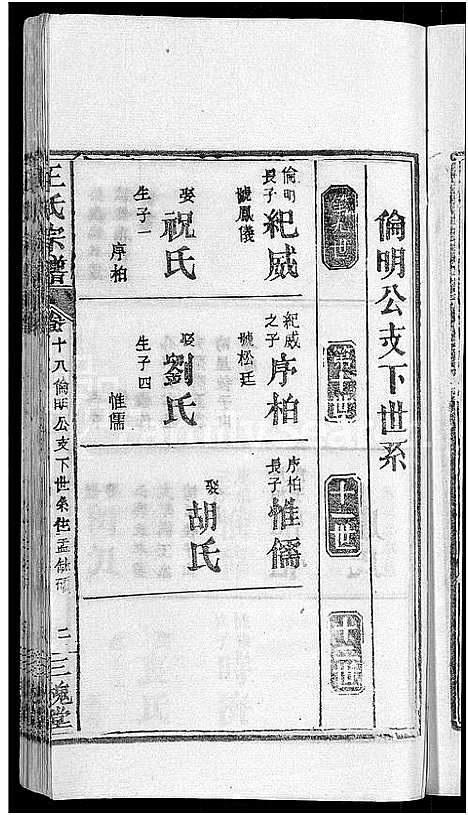 倫明公支下世系
第九世
第十世
十一世
十二世
倫明
長子
紀威
號鳳儀
娶
祝氏
生子一
序柏
紀威
之子
序柏
號松廷
娶
劉氏
生子四
惟儒
序柏
長子
惟儒
娶
胡氏
王氏宗譜
卷十八倫明公支下世系
二
三槐堂